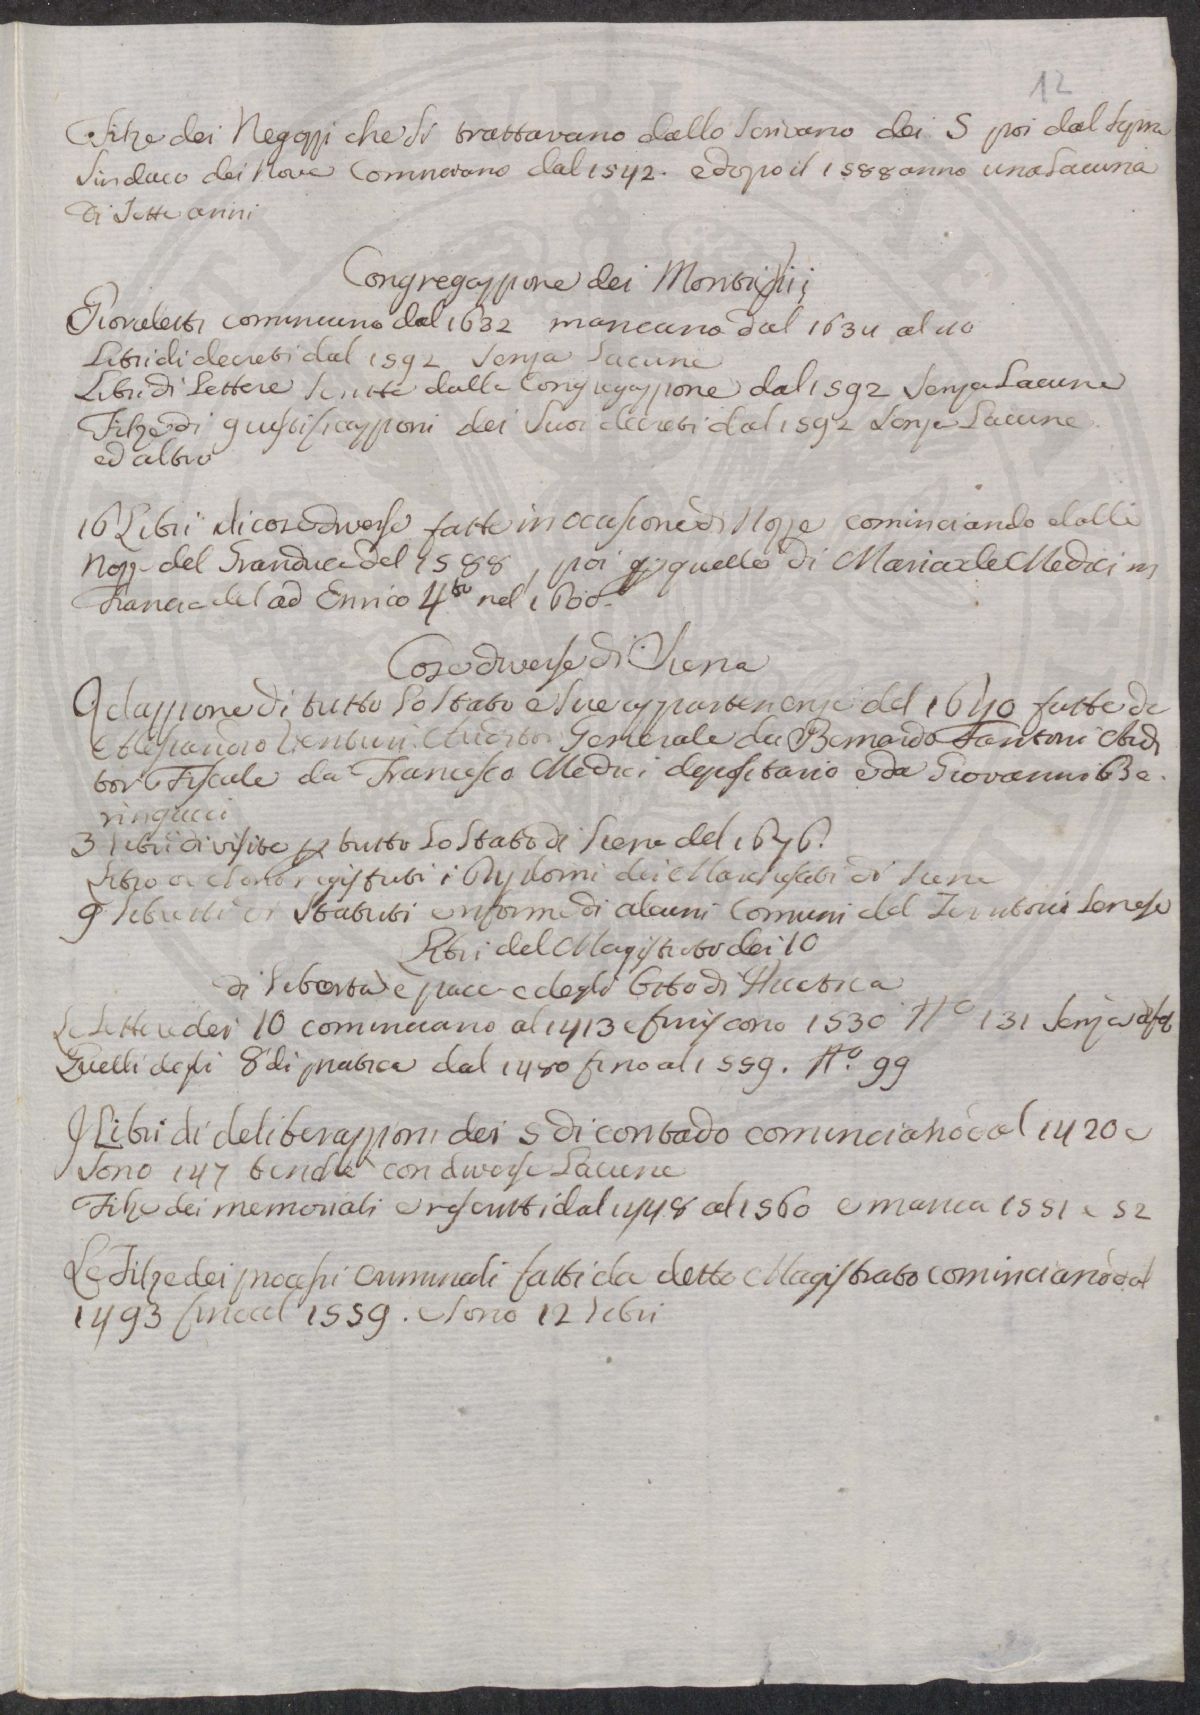 12
Filze dei Negozzi che si trattavano dallo Scrivano dei 5 poi dal Sopra
Sindaco dei Nove Cominciano dal 1542. e dopo il 1588 anno una Lacuna
di Sette anni
Congregazzione dei Monti
Giornaletti cominciano dal 1632 mancano dal 1634 al 40
Libri di decreti dal 1592 senza lacune
Libri di Lettere scritte dalla Congregazzione dal 1592 senza Lacune
Filze di giustificazzioni dei suoi decreti dal 1592 senza Lacune
ed altro
16 Libri di cose diverse fatte in occasione di Nozze cominciando dalle
Nozze del Granduca del 1588, poi quelle di Maria de Medici in
Francia ad Enrico 4to nel 1600.
Cose diverse di Siena
Relazzione di tutto lo Stato e sue appartenenze del 1640 fatte da
Alessandro Venturi Auditor Generale da Bernardo Fantoni Audi
tore Fiscale da Francesco Medici depositario e da Giovanni Be
ringucci
3 Libri di visite per tutto lo Stato di Siena del 1676.
Libro ove sono registrati i Diplomi dei Marchesati di Siena
9 Libretti di Statuti e riforme di alcuni Comuni del Territorio Senese
Libri del Magistrato dei 10
di libertà e pace e degli Otto di Pratica
Le Lettere dei 10 cominciano al 1413 e finiscono 1530 No 131 senza
Quelli degli 8 di pratica dal 1480 fino al 1559. No. 99
I Libri di deliberazzioni dei 5 di contado cominciano dal 1420 e
sono 147 benche con diverse Lacune
Filze dei memoriali e rescritti dal 1448 al 1560 e manca 1551 e 52
Le Filze dei processi criminali fatti da detto Magistrato cominciano dal
1493 fino al 1559. e sono 12 Libri